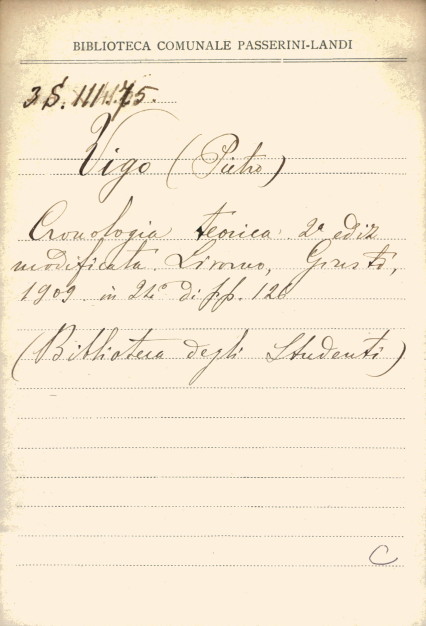 BIBLIOTECA COMUNALE PASSERINI-LANDI
3 S. III. 75.
Vigo (Pietro)
Cronologia teorica. 2ª ediz
modificata. Livorno, Giusti,
1909 in 24° di pp. 126
(Biblioteca degli Studenti)
C